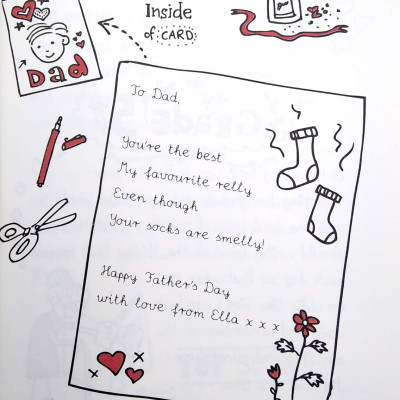 Dad
Inside
of CARD
To Dad,
You're the best
My favourite relly
Even though
Your socks are smelly!
Happy Father's Day
with love from Ella x x x